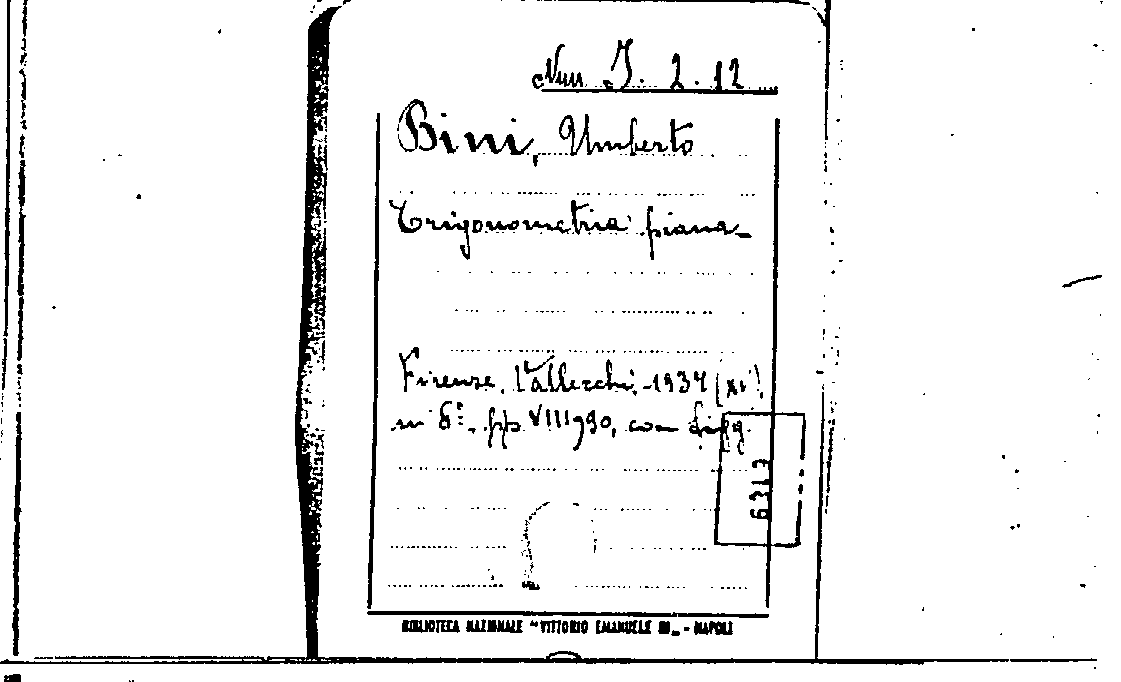 Nun J. 2. 12
Bini, Umberto
Trigonometria piana_
Firenze, Vallecchi, 1937 (xv)
in 8º, pp VIII, 90, con figg.
6313
BIBLIOTECA NAZIONALE "VITTORIO EMANUELE III„ - NAPOLI